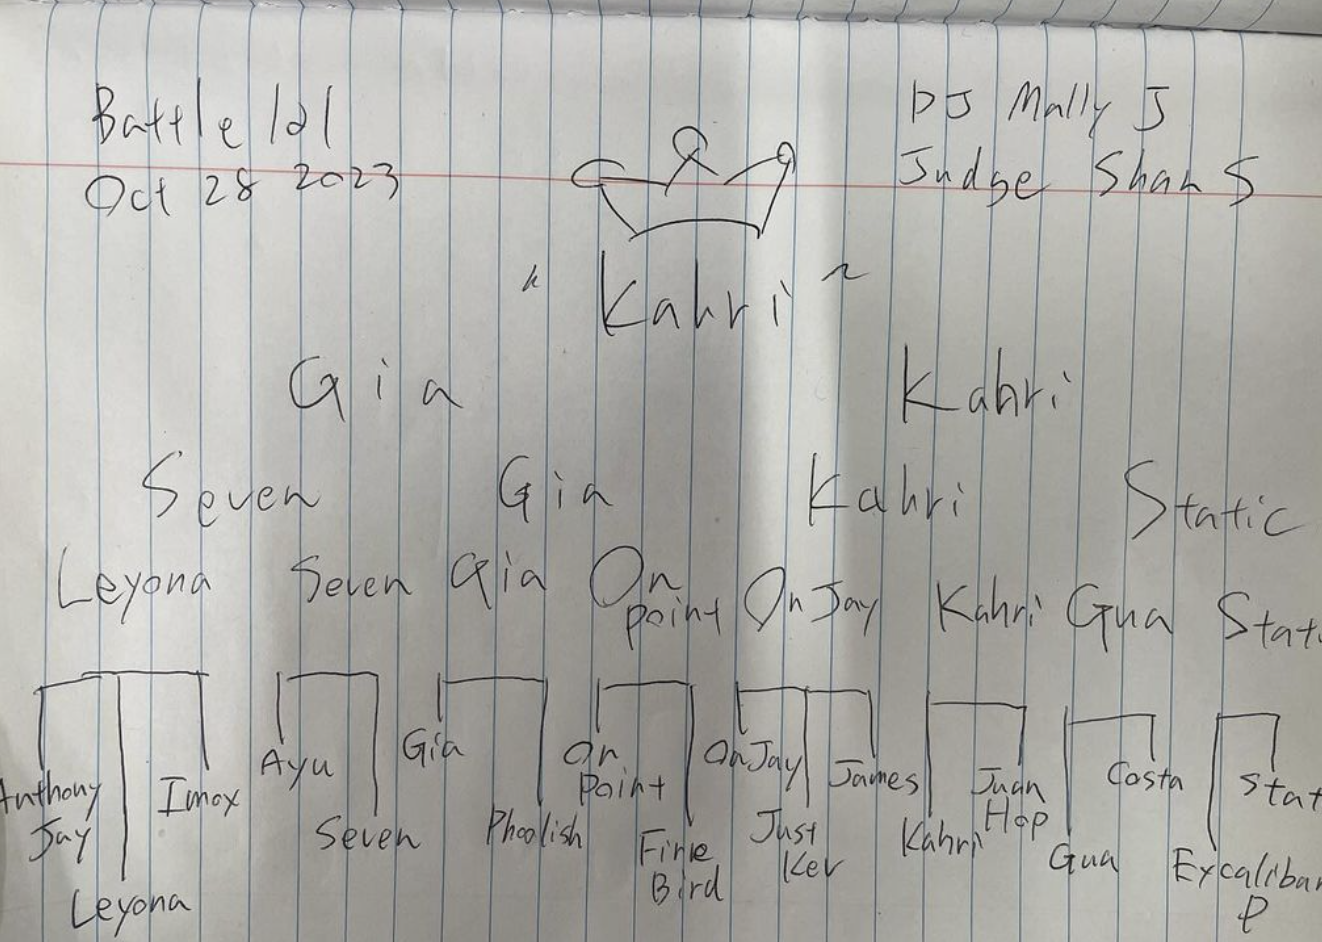 Battle 101
Oct 28 2023
DJ Mally J
Judge Shan S
"Kahri"
Gia Kahri
Seven Gia Kahri Static
Leyona Seven Gia On Point OnJay Kahri Gua Stat
Anthony Jay
Leyona
Imox
Ayu
Seven
Gia
Phoolish
On Point
Fire Bird
OnJay
Just Kev
James
Kahri
Juan Hop
Gua
Costa
Excalibar P
Stat